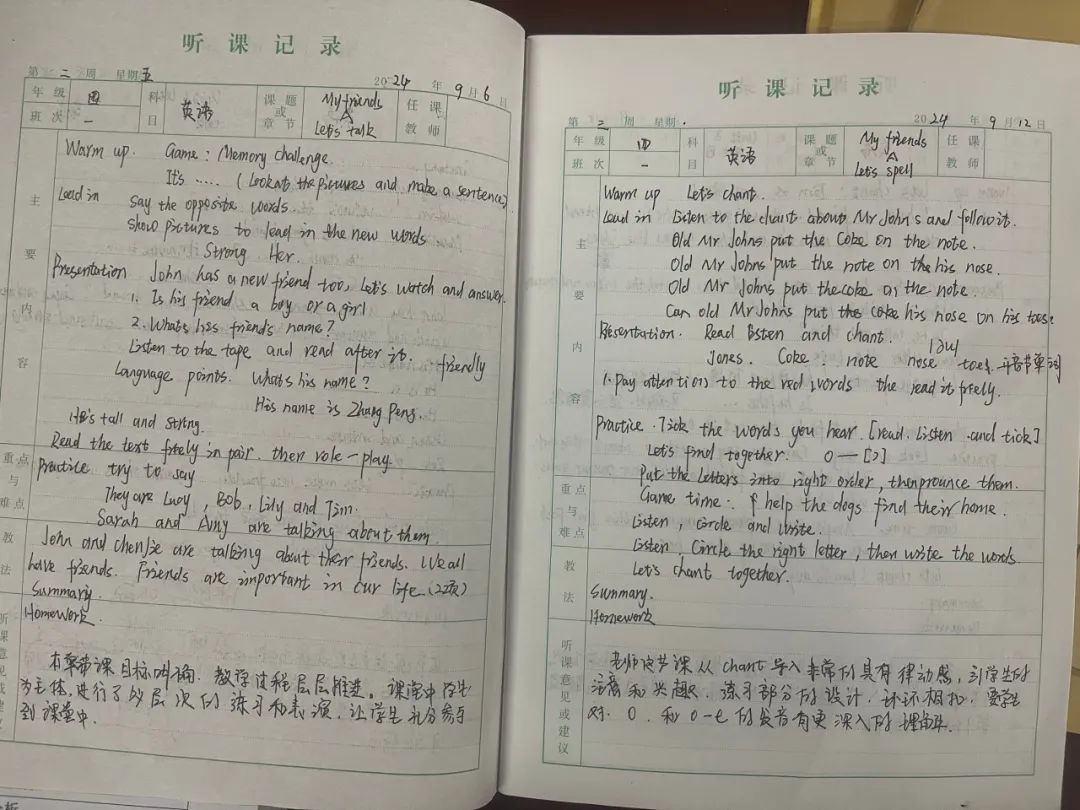 听课记录
第 二 周 星期 五 2024 年 9 月 6 日
年级 四 科目 英语 课题或章节 My friends 任课教师
班次 一 Let's talk
主要内容
Warm up. Game: Memory challenge.
It's ..... (Look at the pictures and make a sentence).
Lead in Say the opposite words.
Show pictures to lead in the new words
Strong. Her.
Presentation John has a new friend too, Let's watch and answer.
1. Is his friend a boy or a girl
2. What's his friend's name?
Listen to the tape and read after it. friendly
Language points. What's his name?
His name is Zhang Peng.
He's tall and strong.
Read the text freely in pair. then role-play.
重点与难点
Practice try to say
They are Lucy, Bob, Lily and Tim.
Sarah and Amy are talking about them.
教法
John and Chen Jie are talking about their friends. We all
have friends. Friends are important in our life
Summary.
Homework.
听课意见或建议
教学过程层层推进。课堂中学生
为主体,进行了多层次的练习和表演,让学生充分参与
到课堂中.
听课记录
第 三 周 星期 2024 年 9 月 12 日
年级 四 科目 英语 课题或章节 My friends 任课教师
班次 一 Let's spell
主要内容
Warm up Let's chant.
Lead in Listen to the chant about Mr Johns and follow it.
Old Mr Johns put the Coke on the note.
Old Mr Johns put the note on the his nose.
Old Mr Johns put the coke on the note.
Can old Mr Johns put the coke his nose on his toes?
Presentation. Read listen and chant.
Jones. Coke. note nose toes. 音节单词
1. Pay attention to the red words the read it freely.
Practice. Tick the words you hear. [read. Listen .and tick]
Let's find together. o —
Put the letters into right order, then pronunce them.
重点与难点
Game time: help the dogs find their home.
Listen, circle and write.
Listen, Circle the right letter, then write the words
教法
Let's chant together.
Summary.
Homework
听课意见或建议
老师这节课从chant导入非常的具有律动感,引学生的
注意和兴趣.练习部分的设计,环环相扣,要学生
对. o. 和 o-e 的发音有更深入的理解.